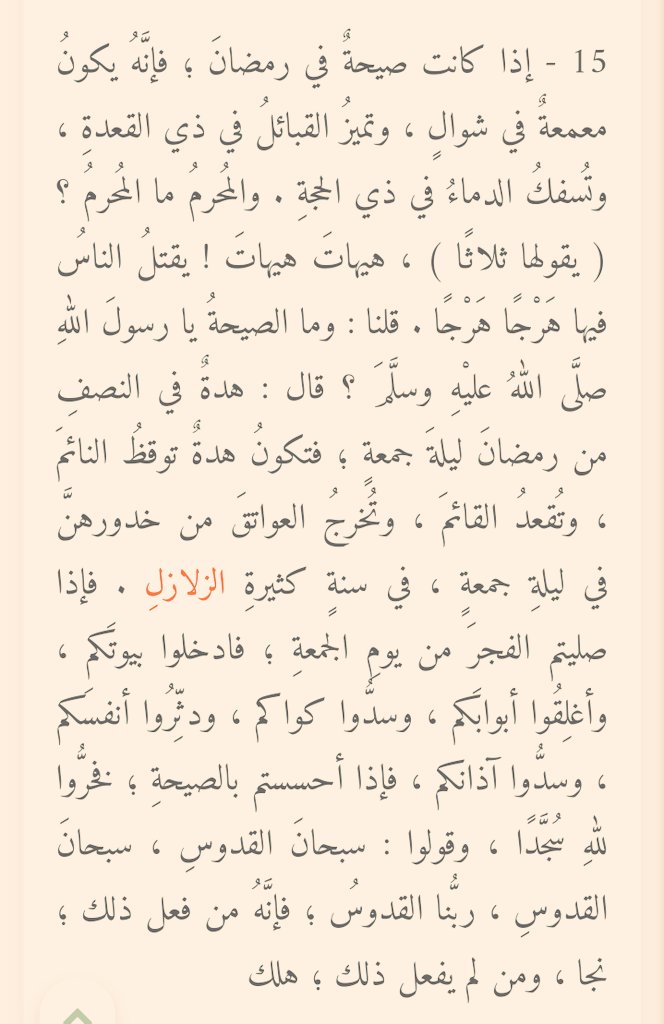 15 - إذا كانت صيحةٌ في رمضانَ ؛ فإنَّهُ يكونُ
معمعةٌ في شوالٍ ، وتميزُ القبائلُ في ذي القعدةِ ،
وتُسفكُ الدماءُ في ذي الحجةِ . والمُحرمُ ما المُحرمُ ؟
( يقولها ثلاثًا ) ، هيهاتَ هيهاتَ ! يقتلُ الناسُ
فيها هَرْجًا هَرْجًا . قلنا : وما الصيحةُ يا رسولَ اللهِ
صلَّى اللهُ عليْهِ وسلَّمَ ؟ قال : هدةٌ في النصفِ
من رمضانَ ليلةَ جمعةٍ ؛ فتكونُ هدةٌ توقظُ النائمَ
، وتُقعدُ القائمَ ، وتُخرجُ العواتقَ من خدورهنَّ
في ليلةِ جمعةٍ ، في سنةٍ كثيرةِ الزلازلِ . فإذا
صليتم الفجرَ من يومِ الجمعةِ ؛ فادخلوا بيوتَكم ،
وأغلِقُوا أبوابَكم ، وسدُّوا كواكم ، ودثِّرُوا أنفسَكم
، وسدُّوا آذانكم ، فإذا أحسستم بالصيحةِ ؛ فخرُّوا
للهِ سُجَّدًا ، وقولوا : سبحانَ القدوسِ ، سبحانَ
القدوسِ ، ربُّنا القدوسُ ؛ فإنَّهُ من فعل ذلك ؛
نجا ، ومن لم يفعل ذلك ؛ هلك